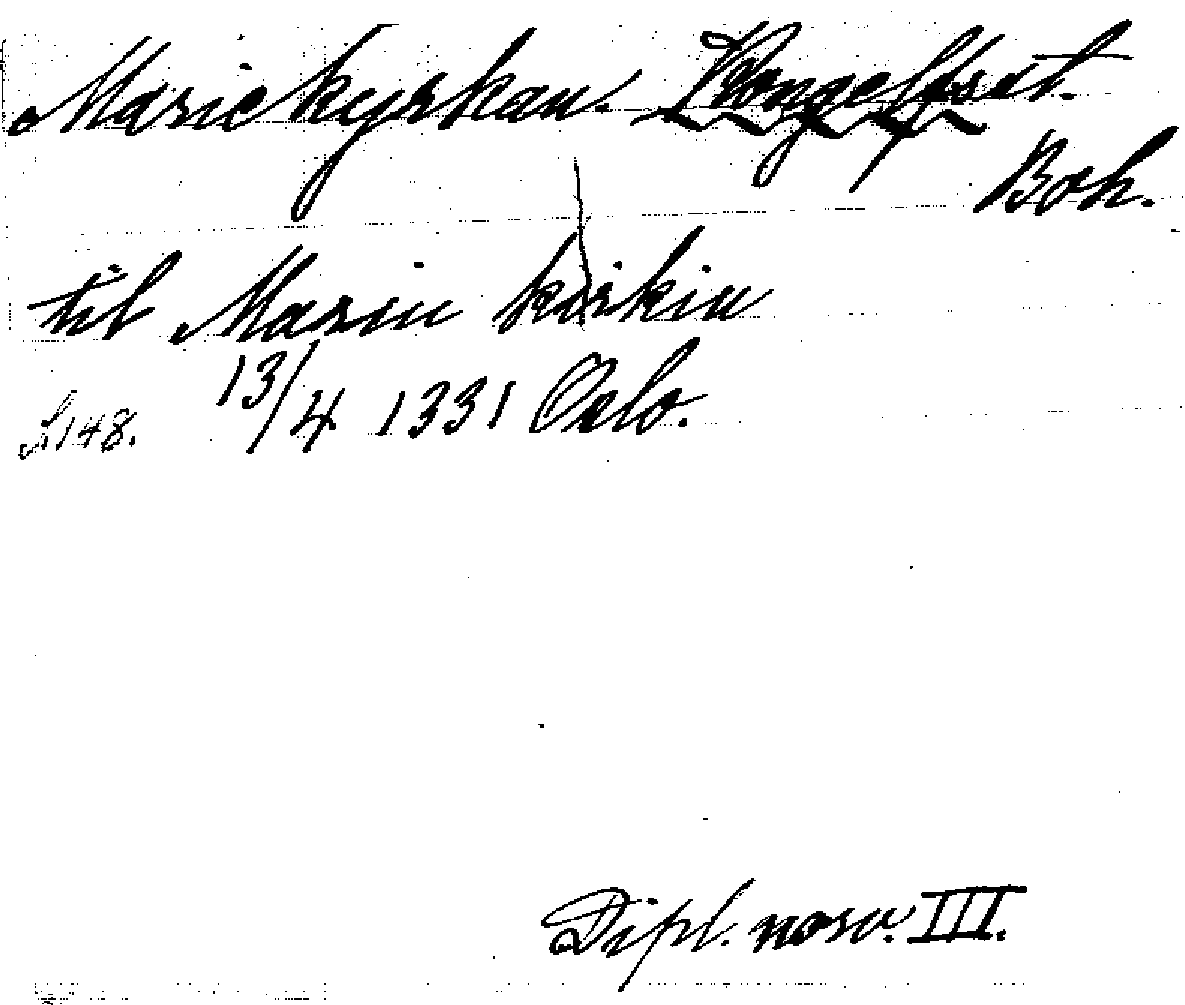 Mariekyrkan. Kongelfsat.
Boh.
til Mariu kirkiu
13/4 1331 Oslo.
S. 148.
Dipl. norv. III.